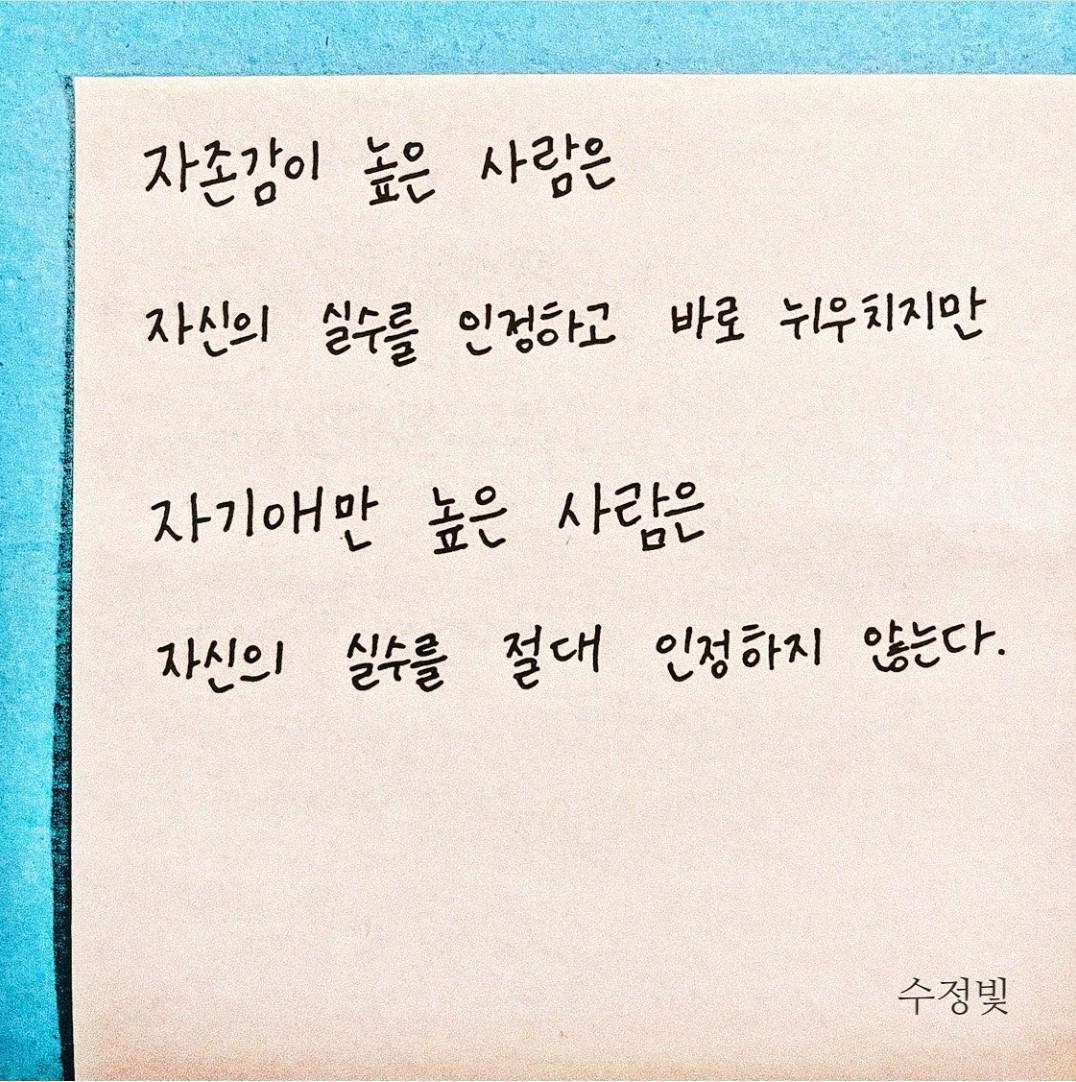 자존감이 높은 사람은
자신의 실수를 인정하고 바로 뉘우치지만
자기애만 높은 사람은
자신의 실수를 절대 인정하지 않는다.
수정빛